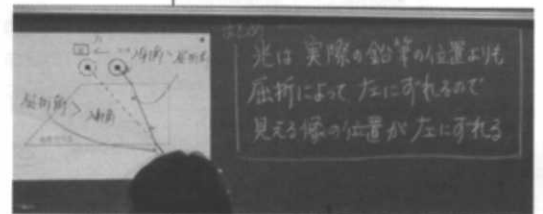 まとめ
入射角＞屈折角
屈折角＞入射角
光は実際の鉛筆の位置よりも
屈折によって左にずれるので
見える像の位置が左にずれる